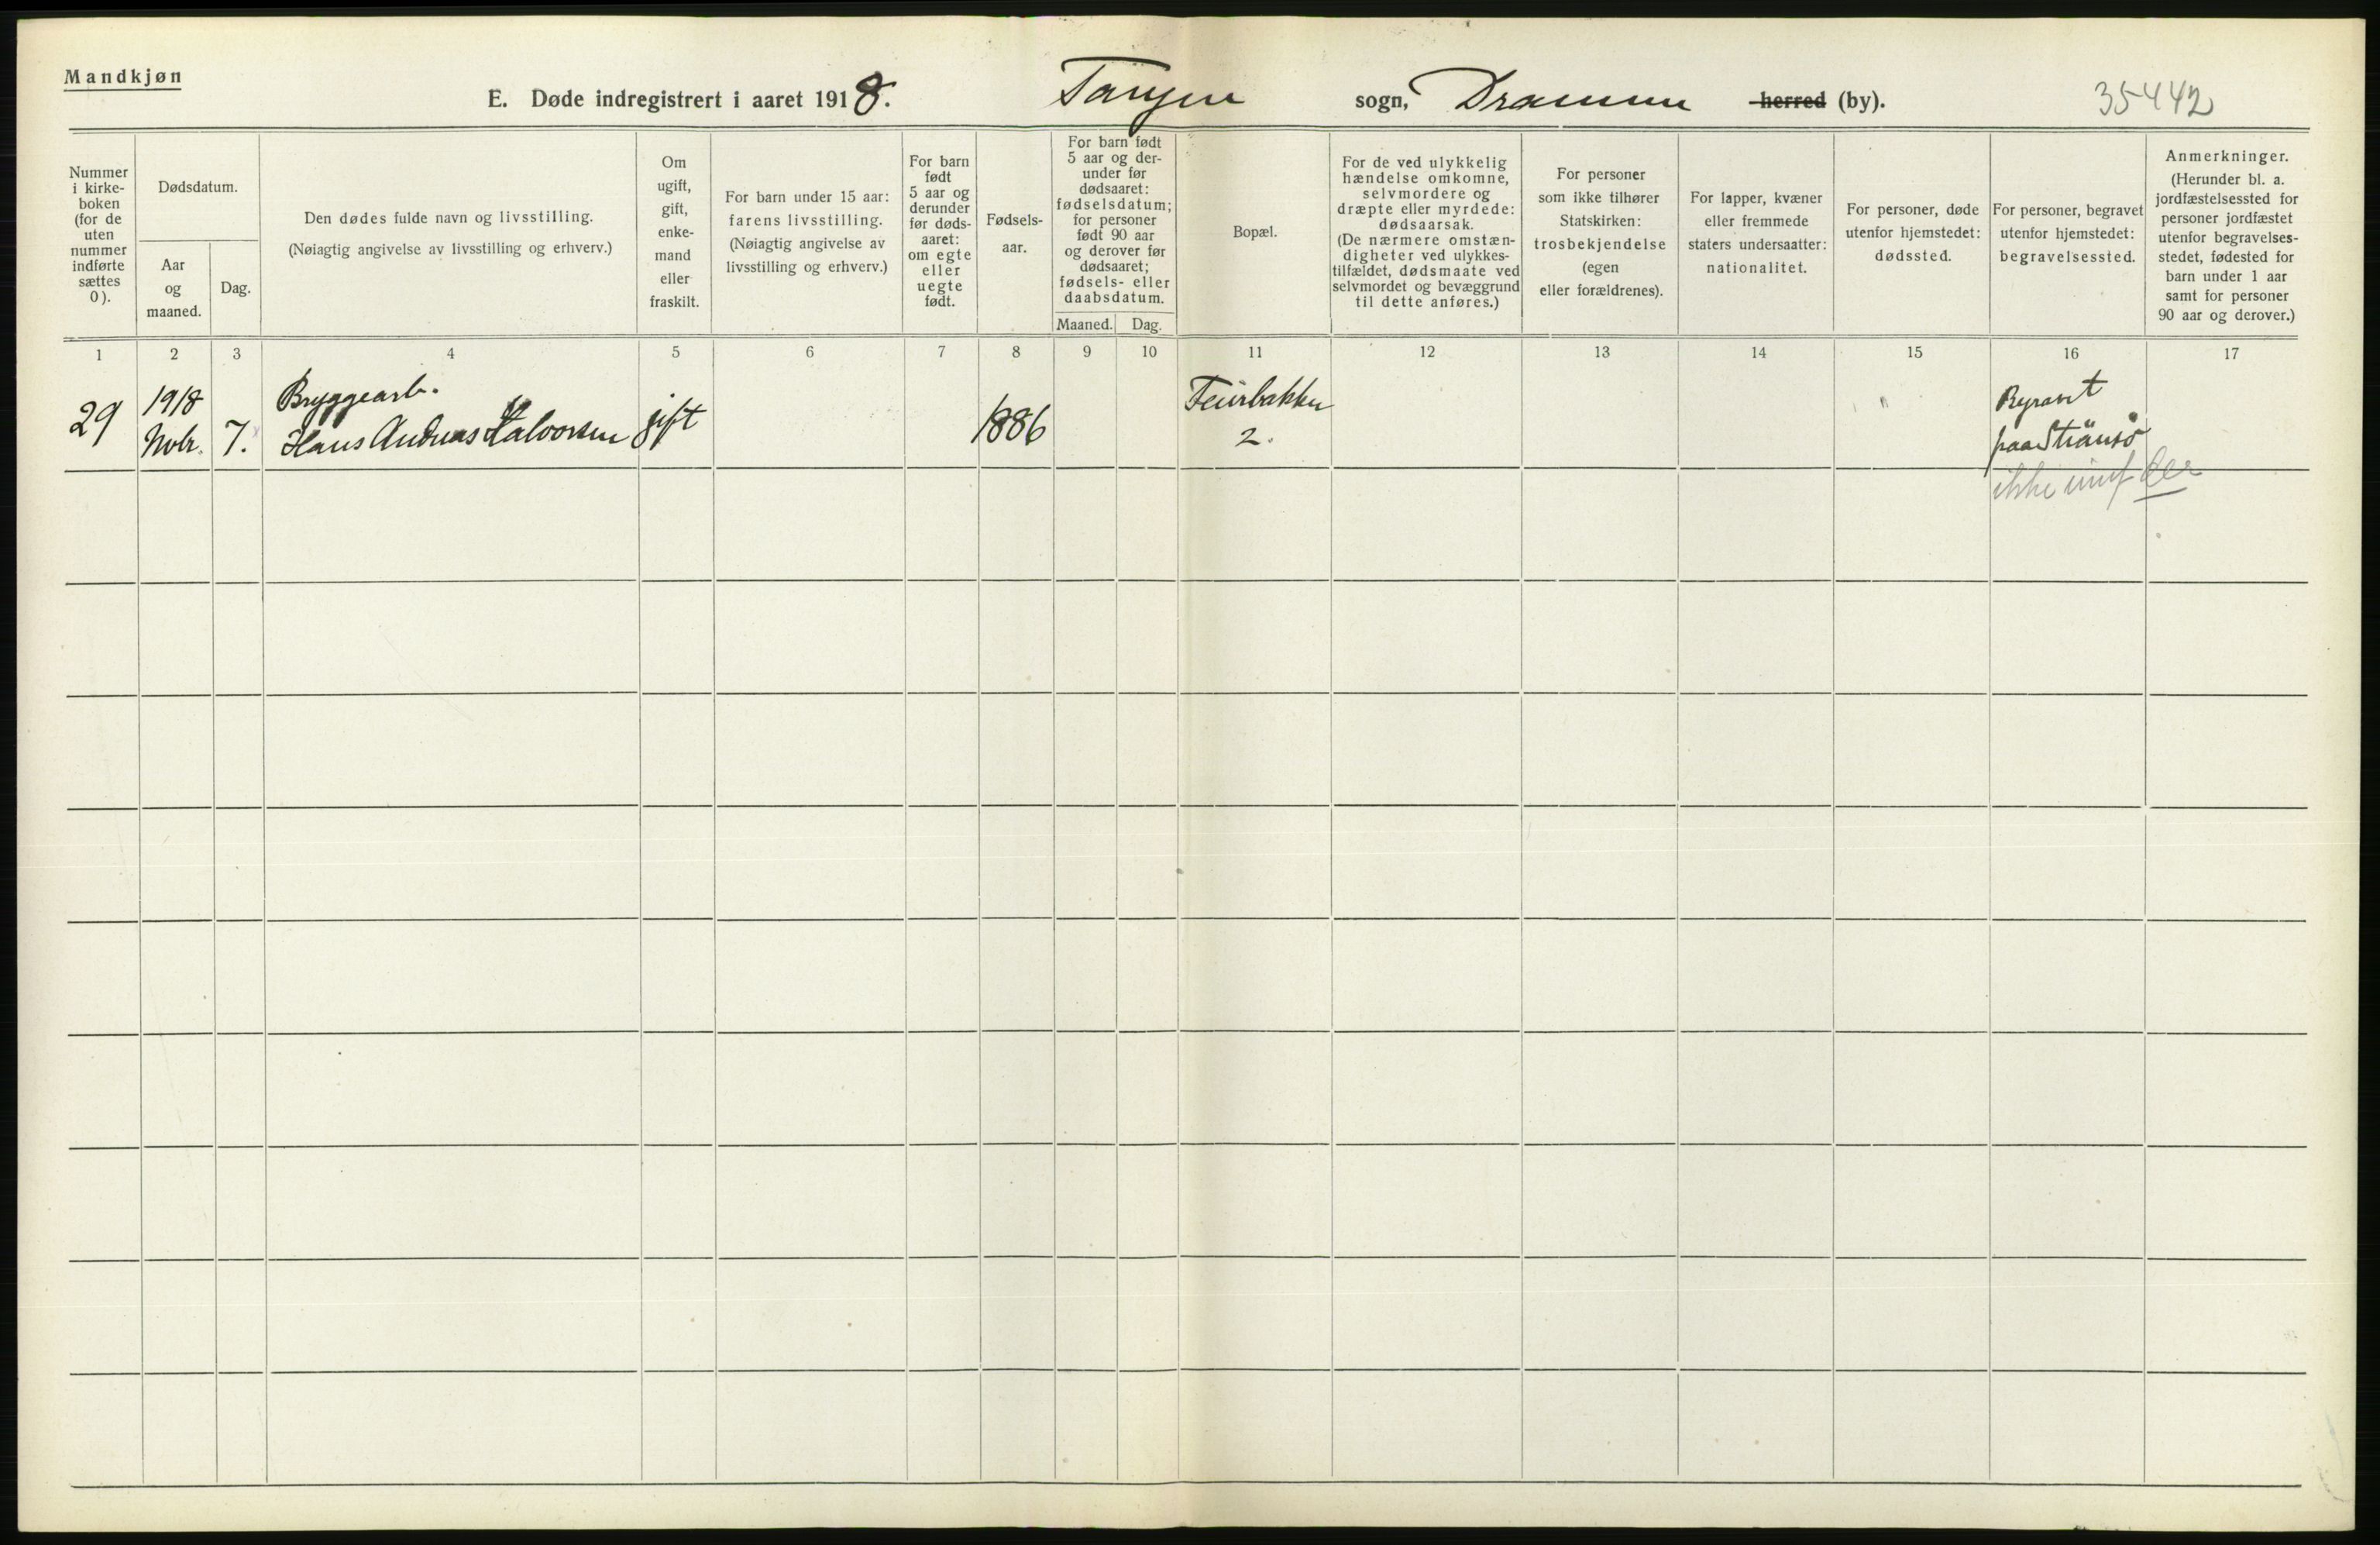 Mandkjøn
E. Døde indregistrert i aaret 1918. Tangen sogn, Drammen herred (by). 35442
Nummer
i kirke-
boken
(for de
uten
nummer
indførte
sættes
0).
Dødsdatum.
Aar
og
maaned.
Dag.
Den dødes fulde navn og livsstilling.
(Nøiagtig angivelse av livsstilling og erhverv.)
Om
ugift,
gift,
enke-
mand
eller
fraskilt.
For barn under 15 aar:
farens livsstilling.
(Nøiagtig angivelse av
livsstilling og erhverv.)
For barn
født
5 aar og
derunder
før døds-
aaret:
om egte
eller
uegte
født.
Fødsels-
aar.
For barn født
5 aar og der-
under før
dødsaaret:
fødselsdatum;
for personer
født 90 aar
og derover før
dødsaaret;
fødsels- eller
daabsdatum.
Maaned. Dag.
Bopæl.
For de ved ulykkelig
hændelse omkomne,
selvmordere og
dræpte eller myrdede:
dødsaarsak.
(De nærmere omstæn-
digheter ved ulykkes-
tilfældet, dødsmaate ved
selvmordet og bevæggrund
til dette anføres.)
For personer
som ikke tilhører
Statskirken:
trosbekjendelse
(egen
eller forældrenes).
For lapper, kvæner
eller fremmede
staters undersaatter:
nationalitet.
For personer, døde
utenfor hjemstedet:
dødssted.
For personer, begravet
utenfor hjemstedet:
begravelsessted.
Anmerkninger.
(Herunder bl. a.
jordfæstelsessted for
personer jordfæstet
utenfor begravelses-
stedet, fødested for
barn under 1 aar
samt for personer
90 aar og derover.)
1 2 3 4 5 6 7 8 9 10 11 12 13 14 15 16 17
29
1918
Novbr. 7.
Bryggearb.
Hans Andreas Halvorsen
gift
1886
Feierbakken
2.
paa Strømsø
ikke